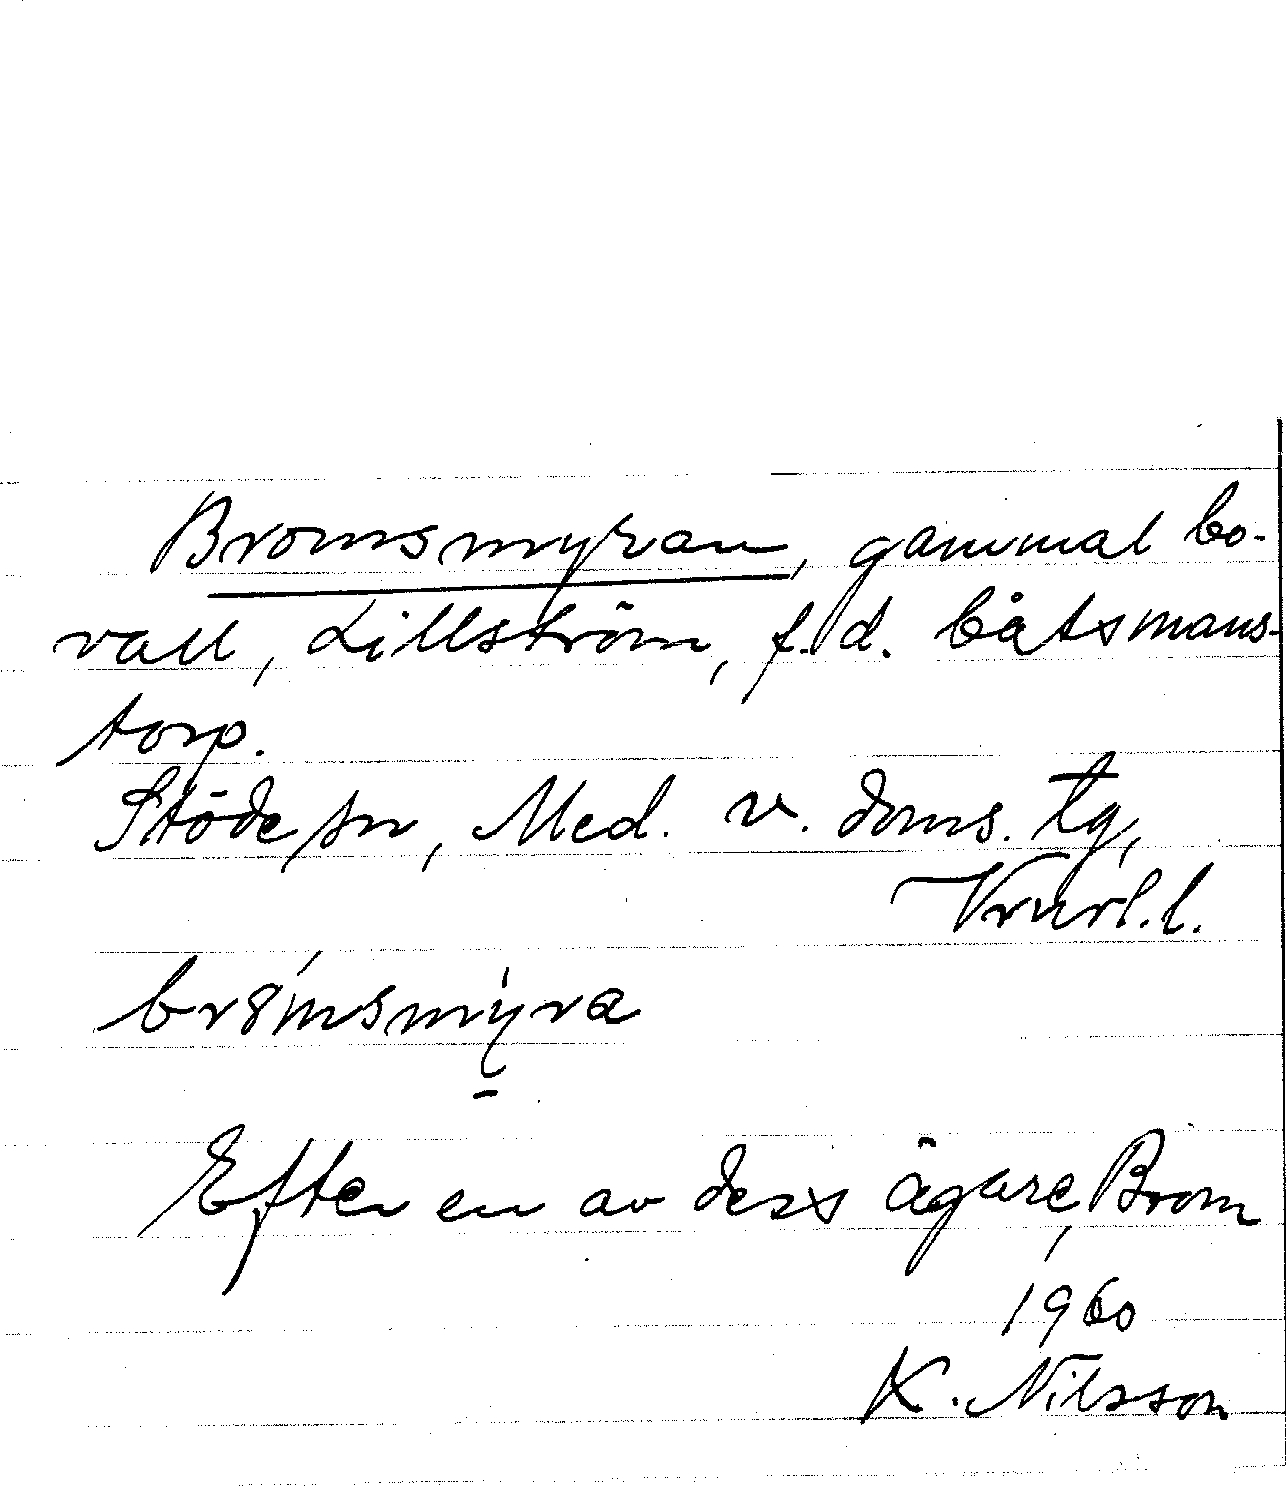 Bromsmyran, gammal bo-
vall, Lillström, f.d. båtsmans-
torp.
Stöde sn, Med. v. doms. tg,
Vrnrl.l.
Efter en av dess ägare, Brom
1960
K. Nilsson